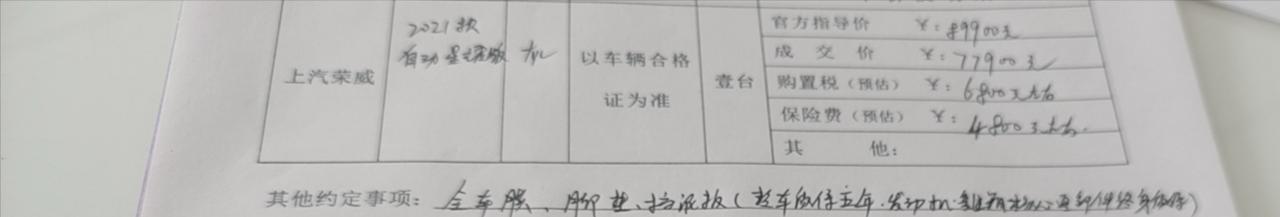 官方指导价 ¥:89900元
2021款
自动星 版
上汽荣威
以车辆合格
证为准
壹台
成交价 ¥:77900元
购置税(预估) ¥:6800元左右
保险费(预估) ¥:4800元左右.
其他:
其他约定事项:全车膜、脚垫、挡泥板(整车质保五年.发动机.变速箱核心零部件终身质保)